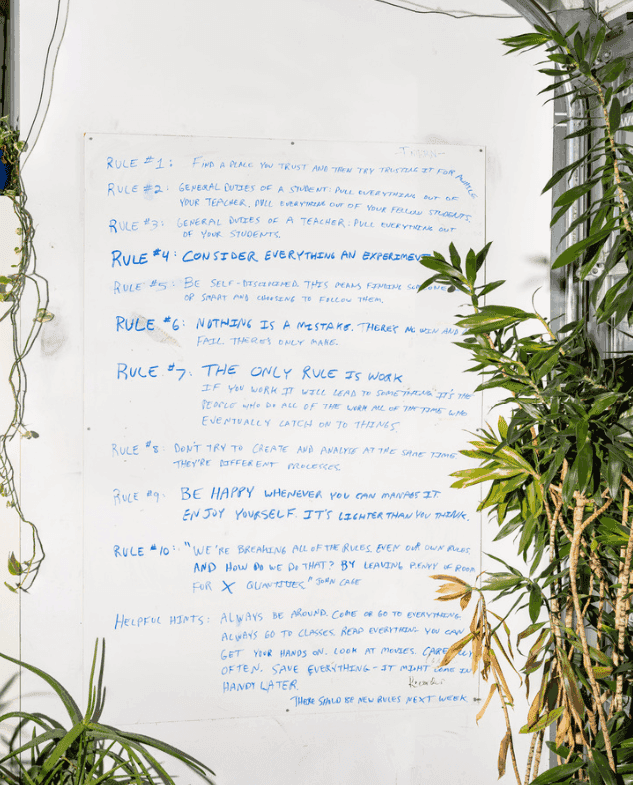 RULE #1: FIND A PLACE YOU TRUST AND THEN TRY TRUSTING IT FOR AWHILE
RULE #2: GENERAL DUTIES OF A STUDENT: PULL EVERYTHING OUT OF
YOUR TEACHER. PULL EVERYTHING OUT OF YOUR FELLOW STUDENTS.
RULE #3: GENERAL DUTIES OF A TEACHER: PULL EVERYTHING OUT
OF YOUR STUDENTS.
RULE #4: CONSIDER EVERYTHING AN EXPERIMENT
RULE #5: BE SELF-DISCIPLINED. THIS MEANS FINDING SOMEONE
OR SMART AND CHOOSING TO FOLLOW THEM.
RULE #6: NOTHING IS A MISTAKE. THERE'S NO WIN AND
FAIL. THERE'S ONLY MAKE.
RULE #7: THE ONLY RULE IS WORK
IF YOU WORK IT WILL LEAD TO SOMETHING. IT'S THE
PEOPLE WHO DO ALL OF THE WORK ALL OF THE TIME WHO
EVENTUALLY CATCH ON TO THINGS
RULE #8: DON'T TRY TO CREATE AND ANALYSE AT THE SAME TIME
THEY'RE DIFFERENT PROCESSES.
RULE #9: BE HAPPY WHENEVER YOU CAN MANAGE IT
ENJOY YOURSELF. IT'S LIGHTER THAN YOU THINK.
RULE #10: "WE'RE BREAKING ALL OF THE RULES. EVEN OUR OWN RULES
AND HOW DO WE DO THAT? BY LEAVING PLENTY OF ROOM
FOR X QUANTITIES." JOHN CAGE
HELPFUL HINTS: ALWAYS BE AROUND. COME OR GO TO EVERYTHING.
ALWAYS GO TO CLASSES. READ EVERYTHING YOU CAN
GET YOUR HANDS ON. LOOK AT MOVIES. CAREFULLY
OFTEN. SAVE EVERYTHING - IT MIGHT COME IN
HANDY LATER.
THERE SHOULD BE NEW RULES NEXT WEEK